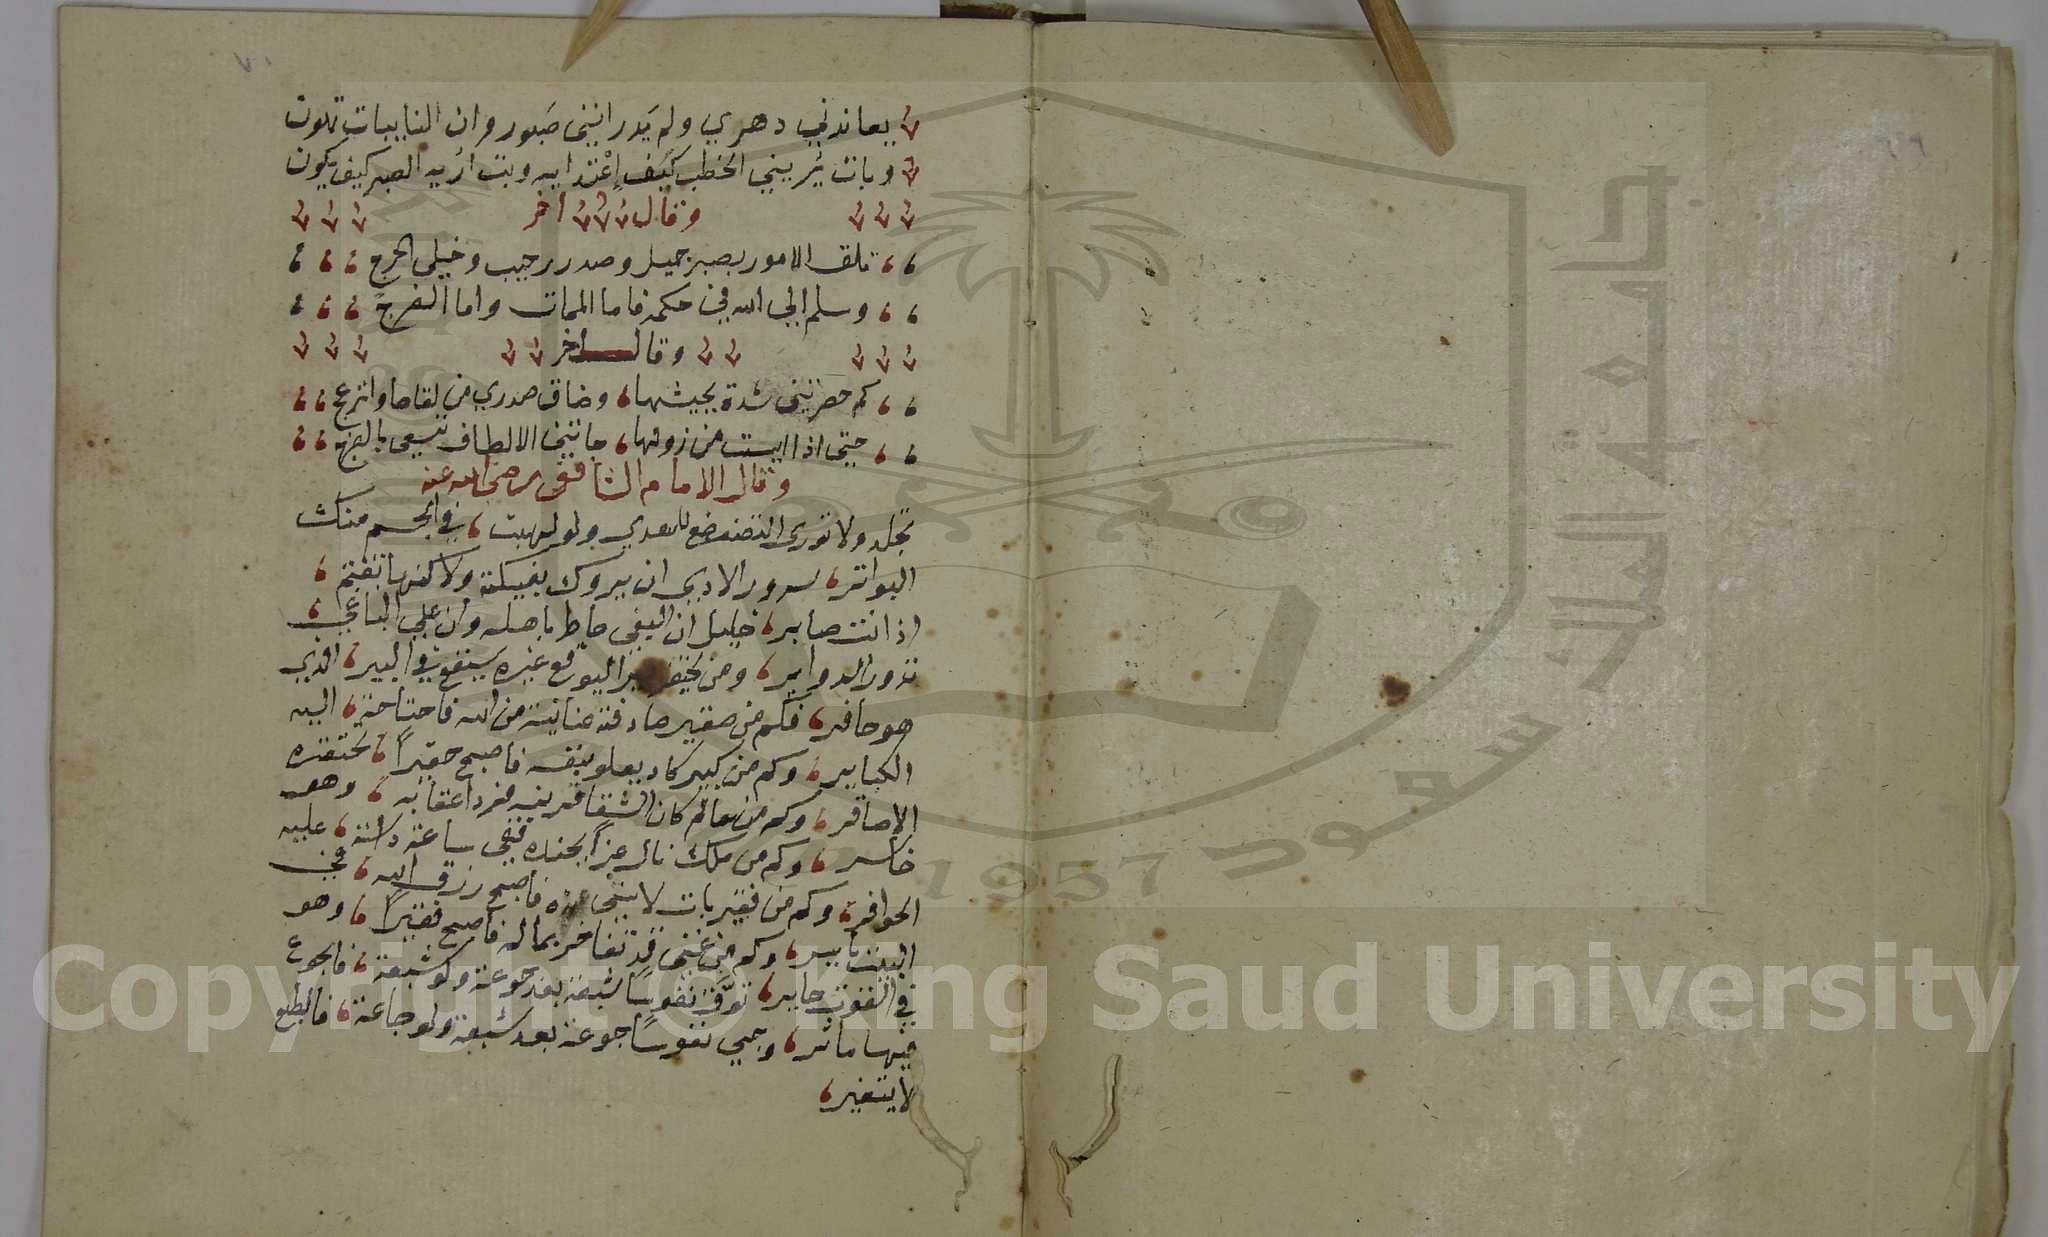 ٧٠
يعاندني دهري ولم يَدر انني صَبور وان النايبات تهون
وبات يُريني الخطب كيَف إعْتدايه وبت اُريه الصبر كيف يكون
وقال اخر
تلق الامور بصبر جميل وصدر رحيب وخلي الحرج
وسلم الي الله في حكمه فاما الممات واما الفرج
وقال أخر
كم حضرتني شدة بجيشها، وضاق صدري من لقاها وانزعج
حتي اذا ايست من زولها، جاتني الالطاف تسعي بالفرج
وقال الامام الشافعي رضي الله عنه
تجلد ولا توري التضعضع للعدي ولو لهبت، في الجسم منك
البواتر، سرور الاديي ان يروك بغيبكة ولا كنها تغتم،
اذ انت صابر، خليل ان البغي حاط باهله وان علي الباغي،
تدور الدواير، ومن يحفر بير اليوقع غيره سيقع في البير، الذي
هو حافر، فكم من صغير صادفته عناية من الله فاحتاجة، اليه
الكبايير، وكم من كبير كاد يعلو بنفسه فاصبح حقيراً، تحتقره
الاصاغر، وكم من عالم كان الشقا قرينه فرد اعقابه، وهو
خاسر، وكم من ملك نال عزاً بجنده ففي ساعة داسته، عليه
الحوافر، وكم من فقير بات لا يتي عزه فاصبح رزق الله، في
البيت باير، وكم من غني قد تفاخر بماله فاصبح فقيراً، وهو
في القوت حاير، توقَّ نفوساً شبعة بعد جوعة ولو شبعة، فالجوع
فيها مائر، وجي نفوساً جوعة بعد شبعة ولو جاعة، فالطبع
لا يتغير،
٦٩
جامعة الملك سعود
1957
Copyright © King Saud University